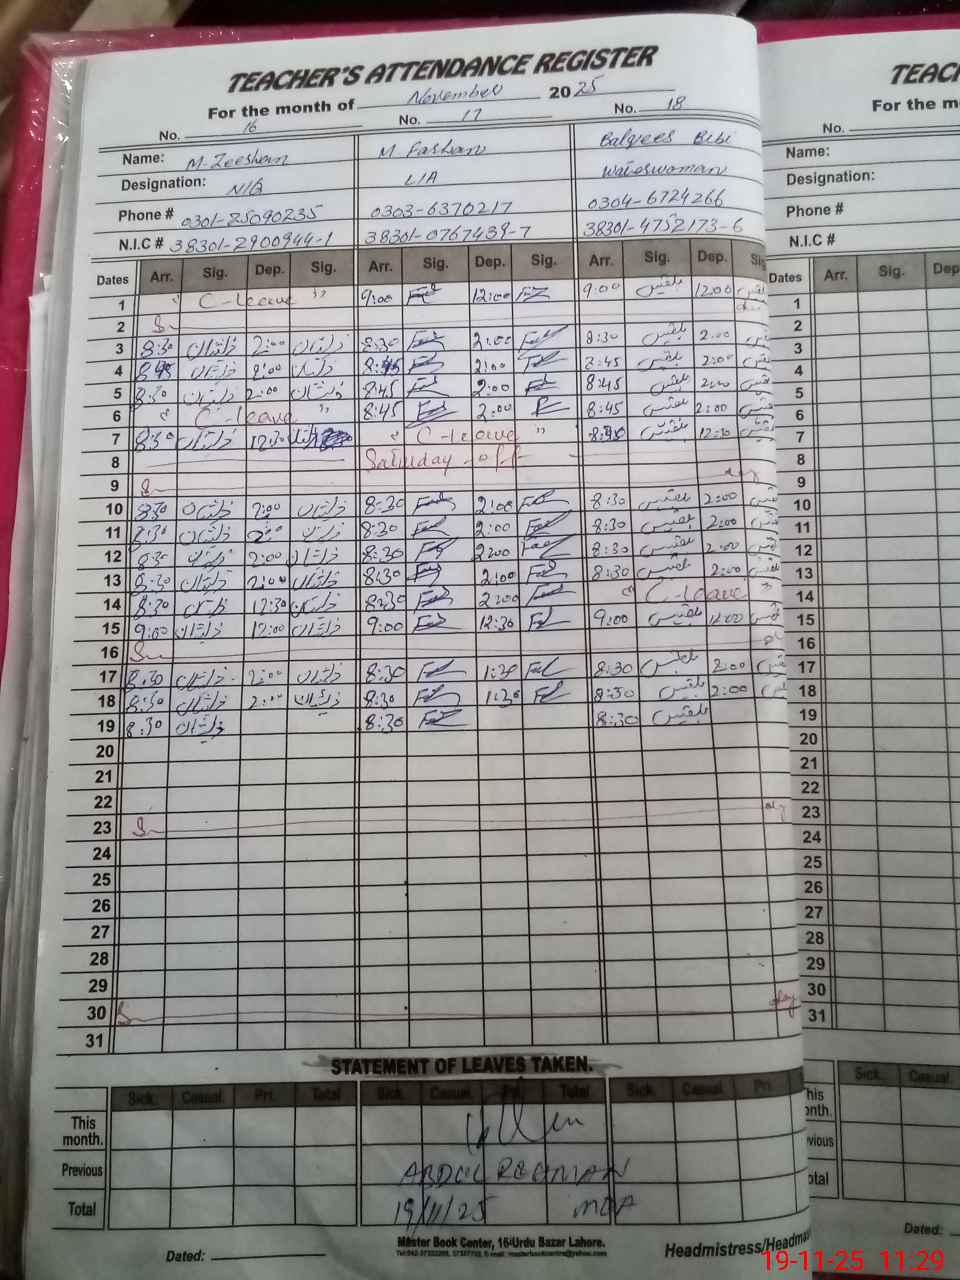 TEACHER'S ATTENDANCE REGISTER
For the month of November 2025
No. 16 No. 17 No. 18
Name: M. Zeeshan M. Farhan Balqees Bibi
Designation: N/Q LIA Waterwoman
Phone # 0301-25090235 0303-6370217 0304-6724266
N.I.C # 38301-2900944-1 38301-0767439-7 38301-4752173-6
Dates Arr. Sig. Dep. Sig. Arr. Sig. Dep. Sig. Arr. Sig. Dep. Sig
1 " C-leave " 9:00 12:00 9:00 بلقیس 12:00
2
3 8:30 ذیشان 2:00 ذیشان 8:30 2:00 8:30 بلقیس 2:00
4 8:45 ذیشان 2:00 ذیشان 8:45 2:00 8:45 بلقیس 2:00
5 8:30 ذیشان 2:00 ذیشان 8:45 2:00 8:45 بلقیس 2:00
6 " C-leave " 8:45 2:00 8:45 بلقیس 2:00
7 8:30 ذیشان 12:30 " C-leave " بلقیس 12:30
8 Saturday off
9
10 8:30 ذیشان 2:00 ذیشان 8:30 2:00 8:30 بلقیس 2:00
11 8:30 ذیشان 2:00 ذیشان 8:30 2:00 8:30 بلقیس 2:00
12 8:30 ذیشان 2:00 ذیشان 8:30 2:00 8:30 بلقیس 2:00
13 8:30 ذیشان 2:00 ذیشان 8:30 2:00 8:30 بلقیس 2:00
14 8:30 ذیشان 12:30 ذیشان 8:30 2:00 " C-leave "
15 9:00 ذیشان 12:00 ذیشان 9:00 12:30 9:00 بلقیس 12:00
16
17 8:30 ذیشان 2:00 ذیشان 8:30 1:30 8:30 بلقیس 2:00
18 8:30 ذیشان 2:00 ذیشان 8:30 1:30 8:30 بلقیس 2:00
19 8:30 ذیشان 8:30 8:30 بلقیس
20
21
22
23
24
25
26
27
28
29
30
31
STATEMENT OF LEAVES TAKEN.
Sick. Casual. Pri. Total Sick. Casual. Pri. Total Sick. Casual. Pri.
This month.
Previous ABDUL REHMAN
Total 19/11/25 MEA
Master Book Center, 16-Urdu Bazar Lahore.
Dated: Headmistress/Headma
TEAC
For the m
No.
Name:
Designation:
Phone #
N.I.C #
Dates Arr. Sig. Dep
1
2
3
4
5
6
7
8
9
10
11
12
13
14
15
16
17
18
19
20
21
22
23
24
25
26
27
28
29
30
31
Sick. Casual.
his
onth.
vious
otal
Dated:
19-11-25 11:29